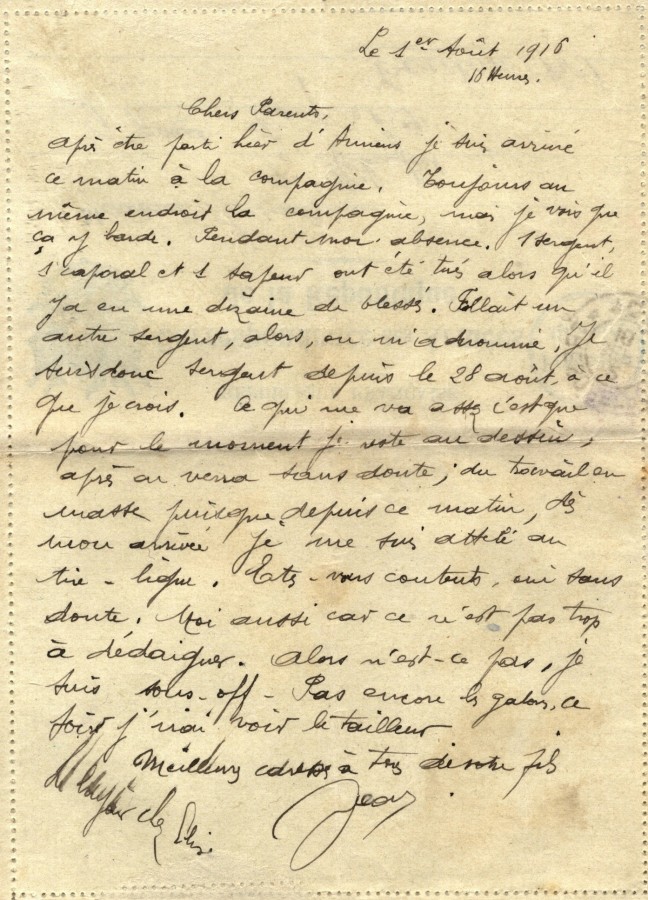 Le 1er Août 1916
16 Heures.
Chers Parents,
après être parti hier d'Amiens je suis arrivé
ce matin à la compagnie. Toujours au
même endroit la compagnie, mais je vois que
ça y barde. Pendant mon absence. 1 sergent,
1 caporal et 1 sapeur ont été tués alors qu'il
y a eu une dizaine de blessés. Fallait un
autre sergent, alors, on m'a nommé, Je
suis donc sergent depuis le 28 août, à ce
que je crois. Ce qui me va assez c'est que
pour le moment je reste au dessin,
après on verra sans doute ; du travail en
masse puisque depuis ce matin, dès
mon arrivée je me suis attelé au
tire-ligne. Etes-vous contents, oui sans
doute. Moi aussi car ce n'est pas trop
à dédaigner. Alors n'est-ce pas, je
suis sous-off - Pas encore les galons, ce
soir j'irai voir le tailleur
Meilleures à tous de votre fils
Jean.
chez